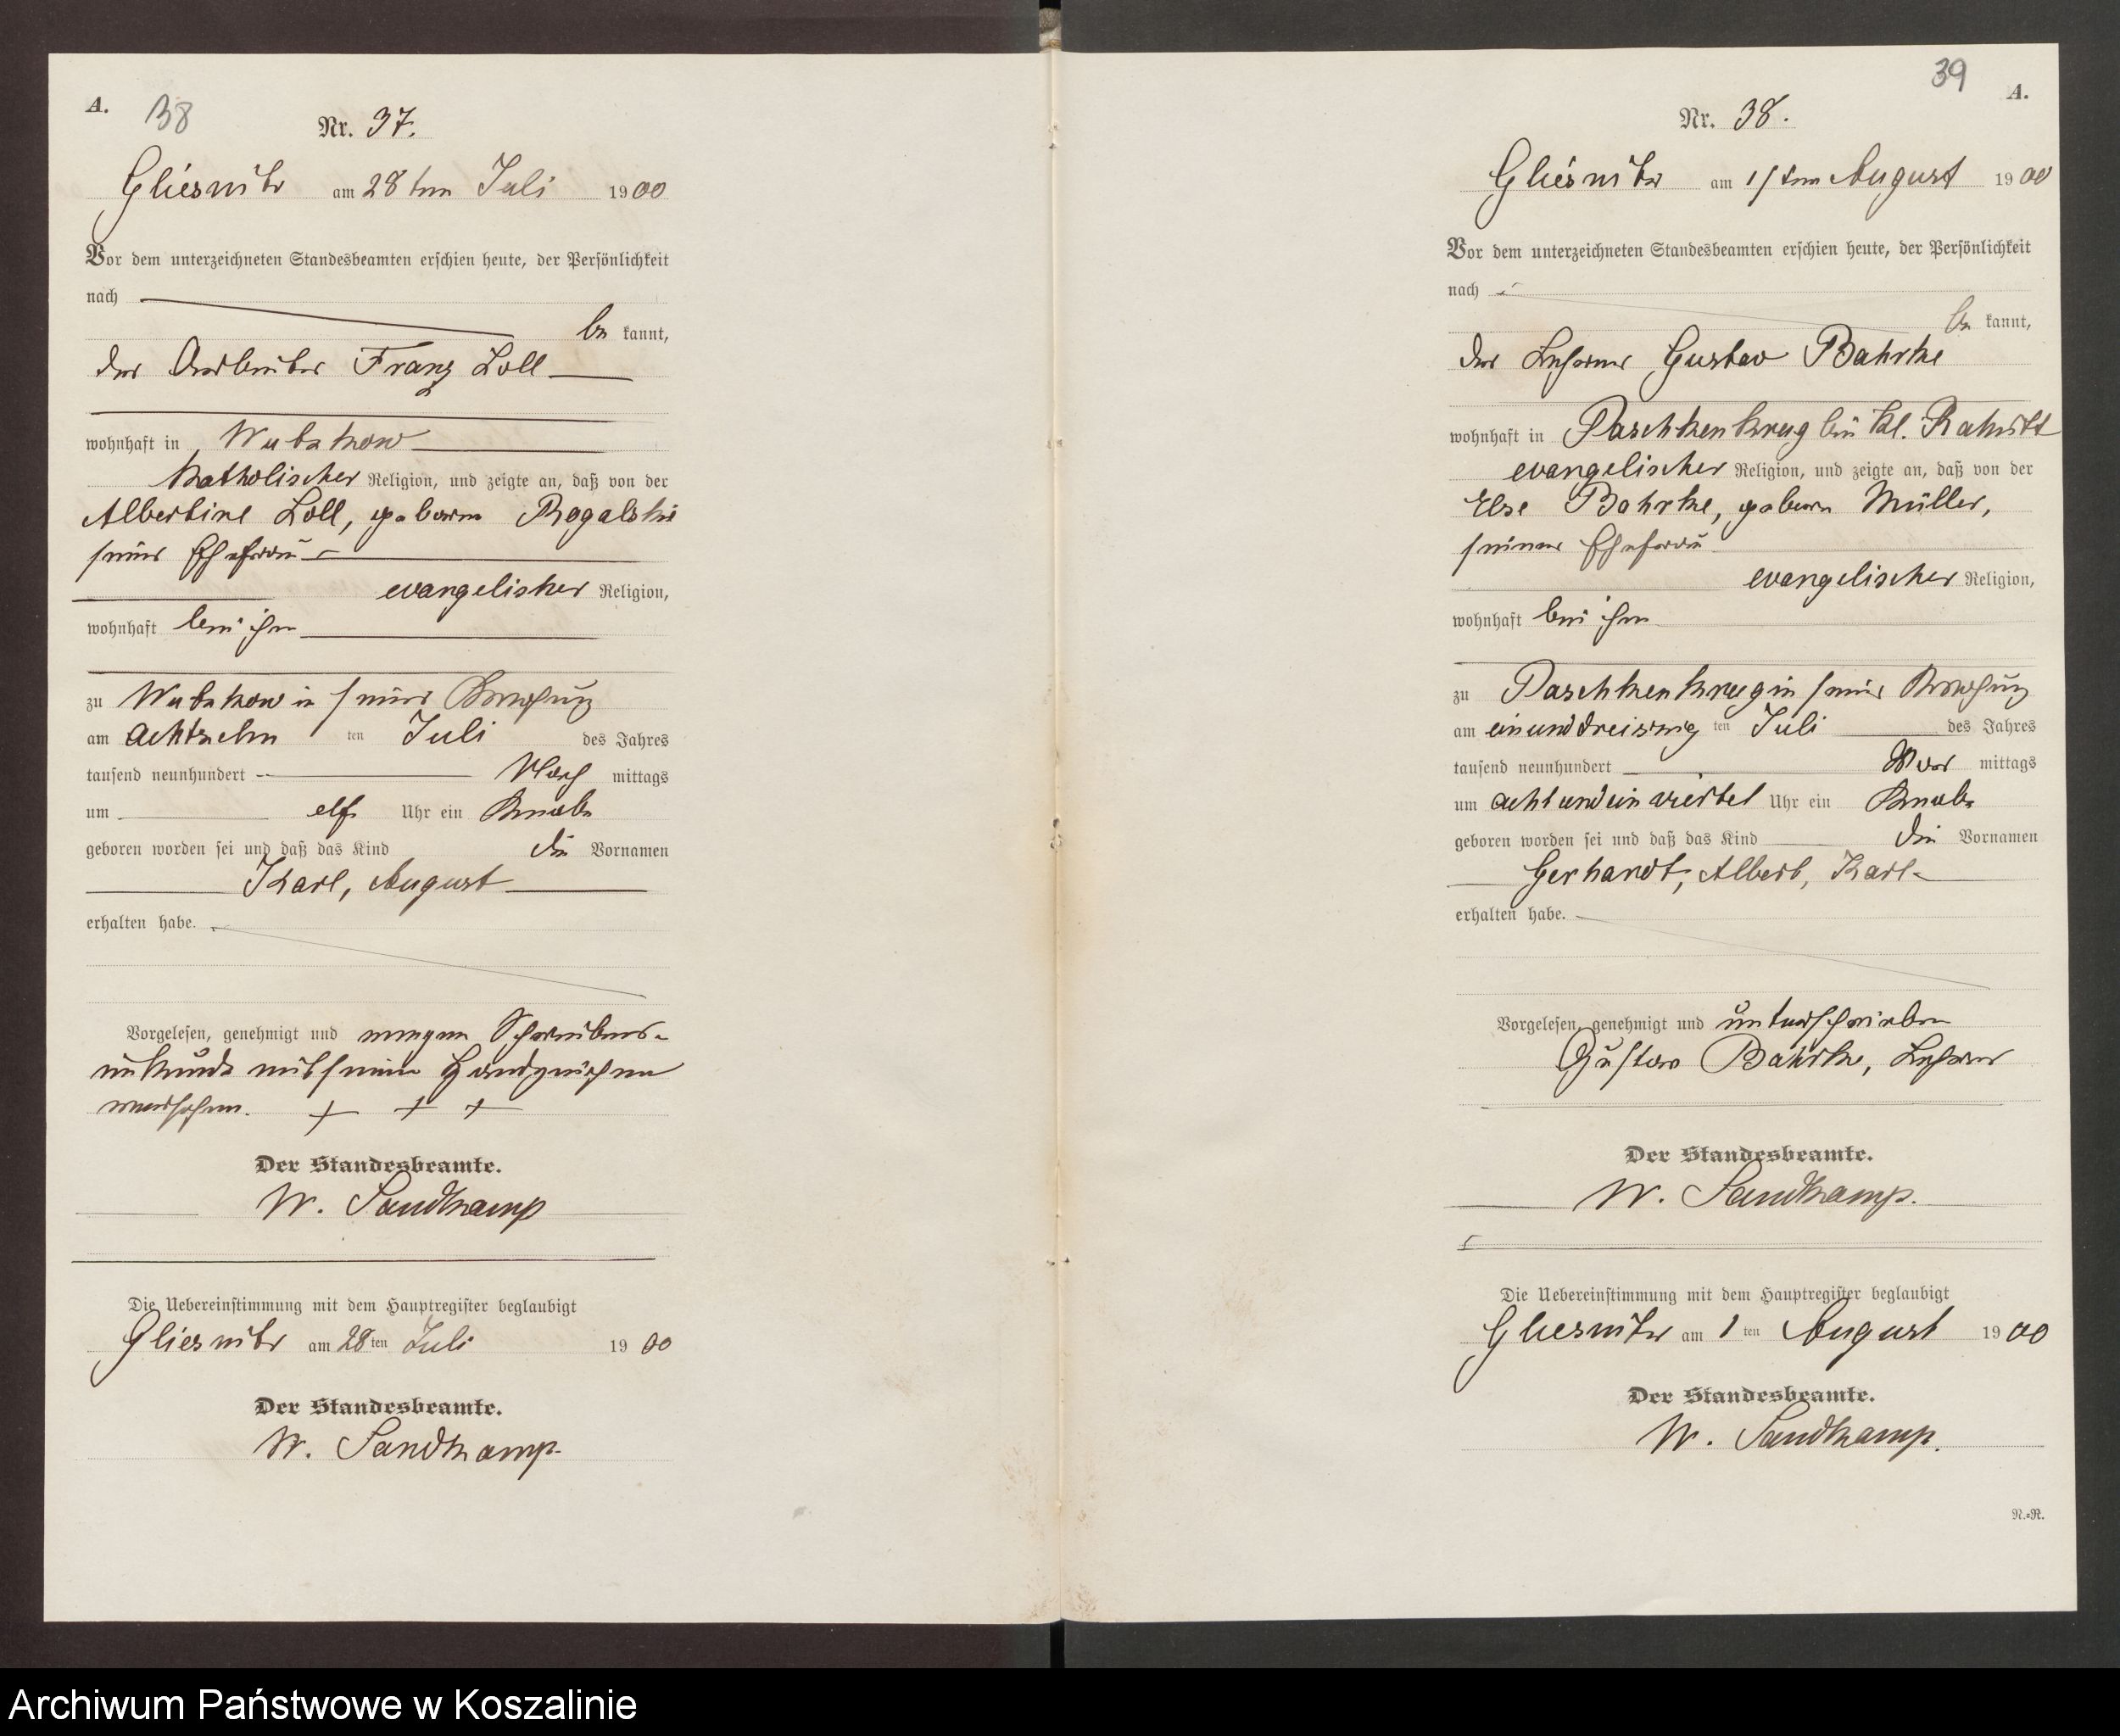 A.
38
Nr. 37.
Gliesnitz am 28ten Juli 1900
Vor dem unterzeichneten Standesbeamten erschien heute, der Persönlichkeit
nach
be kannt,
der Arbeiter Franz Loll
wohnhaft in Wutzkow
katholischer Religion, und zeigte an, daß von der
Albertine Loll, geborne Rogalski
seiner Ehefrau
evangelischer Religion,
wohnhaft bei ihm
zu Wutzkow in seiner Wohnung
am achtzehn ten Juli des Jahres
tausend neunhundert Nach mittags
um elf Uhr ein Knabe
geboren worden sei und daß das Kind die Vornamen
Karl, August
erhalten habe.
Vorgelesen, genehmigt und wegen Schreibens-
unkunde mit seinem Handzeichen
versehen. + + +
Der Standesbeamte.
W. Sandkamp
Die Uebereinstimmung mit dem Hauptregister beglaubigt
Gliesnitz am 28ten Juli 1900
Der Standesbeamte.
W. Sandkamp.
39
A.
Nr. 38.
Gliesnitz am 1ten August 1900
Vor dem unterzeichneten Standesbeamten erschien heute, der Persönlichkeit
nach
be kannt,
der Lehrer Gustav Bahrke
wohnhaft in Paschkenkrug bei Kl. Rakitt
evangelischer Religion, und zeigte an, daß von der
Else Bahrke, geborne Müller,
seiner Ehefrau
evangelischer Religion,
wohnhaft bei ihm
zu Paschkenkrug in seiner Wohnung
am einunddreissig ten Juli des Jahres
tausend neunhundert Vor mittags
um acht und ein viertel Uhr ein Knabe
geboren worden sei und daß das Kind die Vornamen
Gerhardt, Albert, Karl
erhalten habe.
Vorgelesen, genehmigt und unterschrieben
Gustav Bahrke, Lehrer
Der Standesbeamte.
W. Sandkamp.
Die Uebereinstimmung mit dem Hauptregister beglaubigt
Gliesnitz am 1 ten August 1900
Der Standesbeamte.
W. Sandkamp.
N.=R.
Archiwum Państwowe w Koszalinie